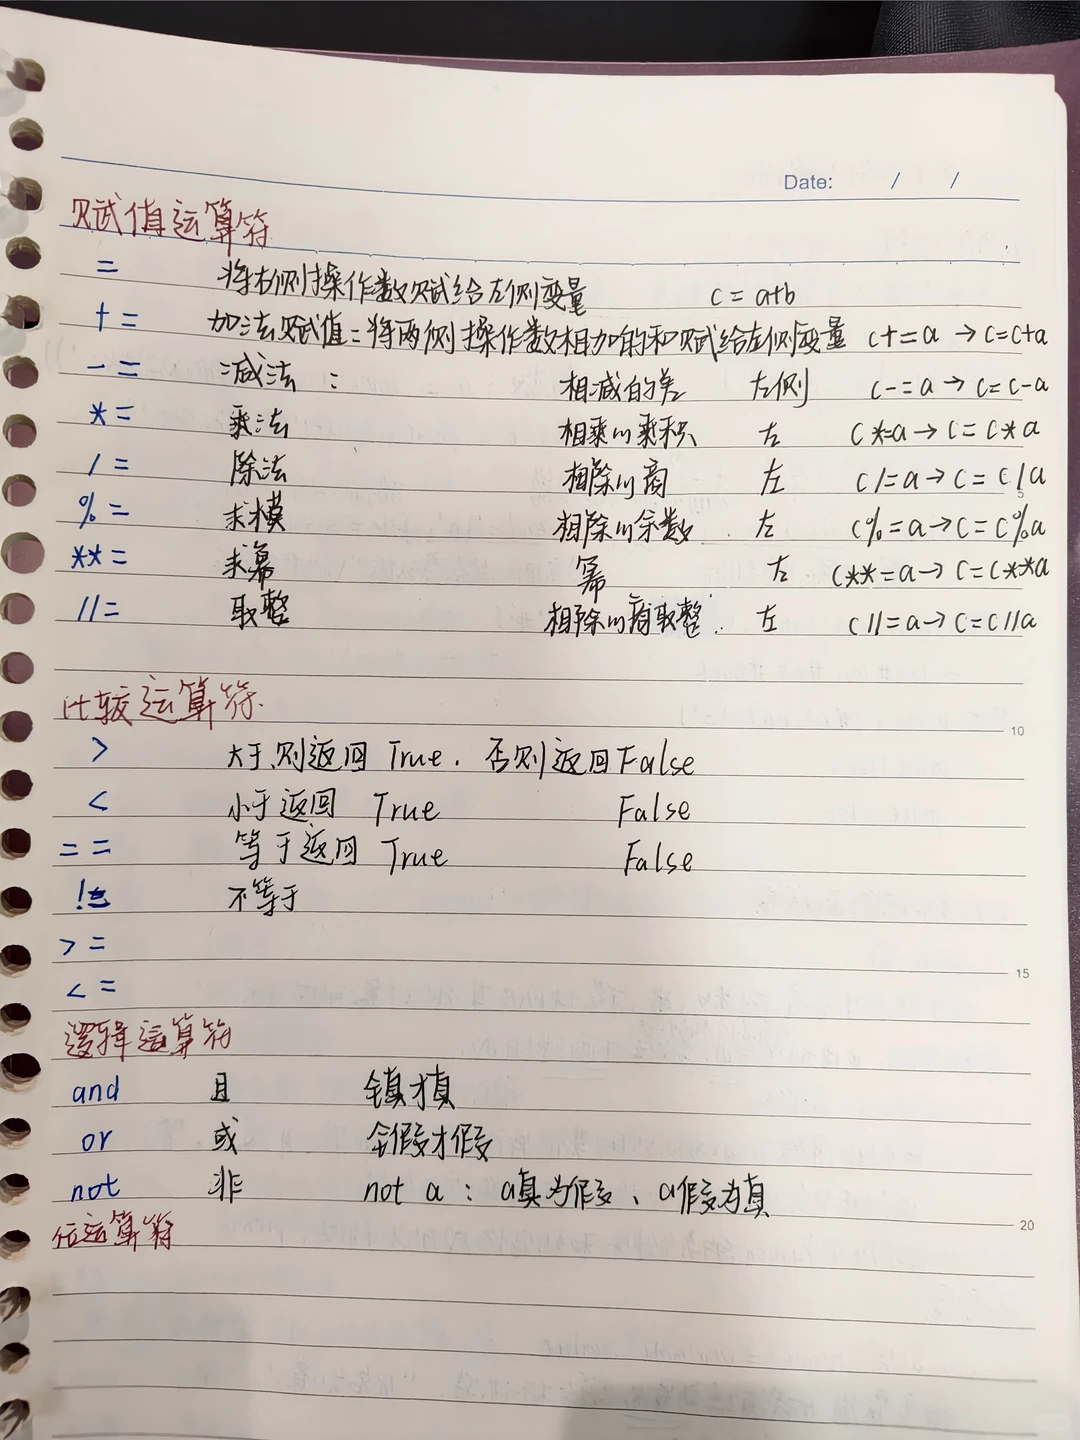 Date: / /
赋值运算符
= 将右侧操作数赋给左侧变量 c = a+b
+= 加法赋值:将两侧操作数相加的和赋给左侧变量 c+=a → c=c+a
-= 减法 : 相减的差 左侧 c-=a → c=c-a
*= 乘法 相乘的乘积 左 c*=a → c=c*a
/= 除法 相除的商 左 c/=a → c=c/a
%= 求模 相除的余数 左 c%=a → c=c%a
**= 求幂 幂 左 c**=a → c=c**a
//= 取整 相除的商取整. 左 c//=a → c=c//a
比较运算符
10
> 大于,则返回 True. 否则返回False
< 小于返回 True False
== 等于返回 True False
!= 不等于
>=
15
<=
逻辑运算符
and 且 全真才真
or 或 全假才假
not 非 not a : a真为假、a假为真
20
位运算符